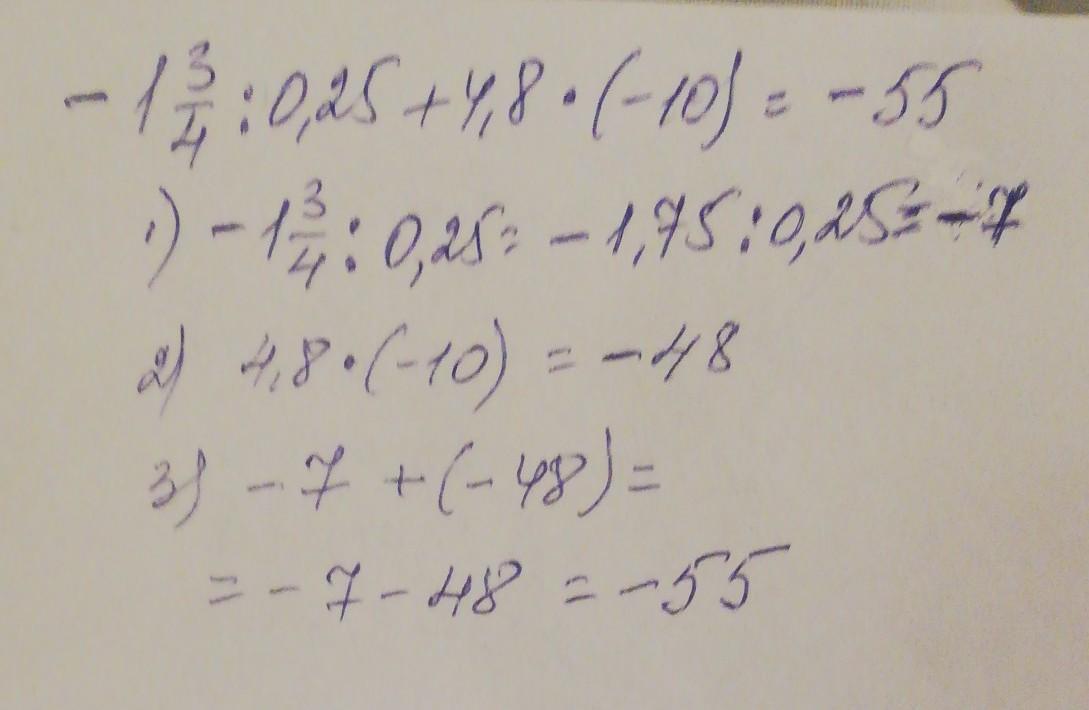 - 1 3/4 : 0,25 + 4,8 · (-10) = -55
1) - 1 3/4 : 0,25 = - 1,75 : 0,25 = -7
2) 4,8 · (-10) = -48
3) - 7 + (- 48) =
= - 7 - 48 = -55